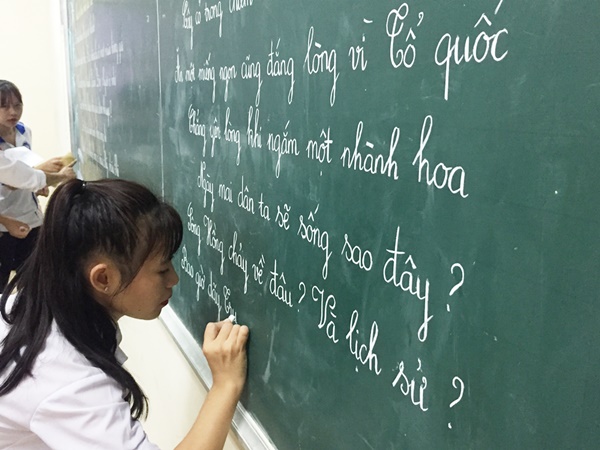 Cây cỏ trong
Ăn một miếng ngon cũng đắng lòng vì Tổ quốc
Chẳng yên lòng khi ngắm một nhành hoa
Ngày mai dân ta sẽ sống sao đây ?
Sông Hồng chảy về đâu ? Và lịch sử ?
Bao giờ dãy